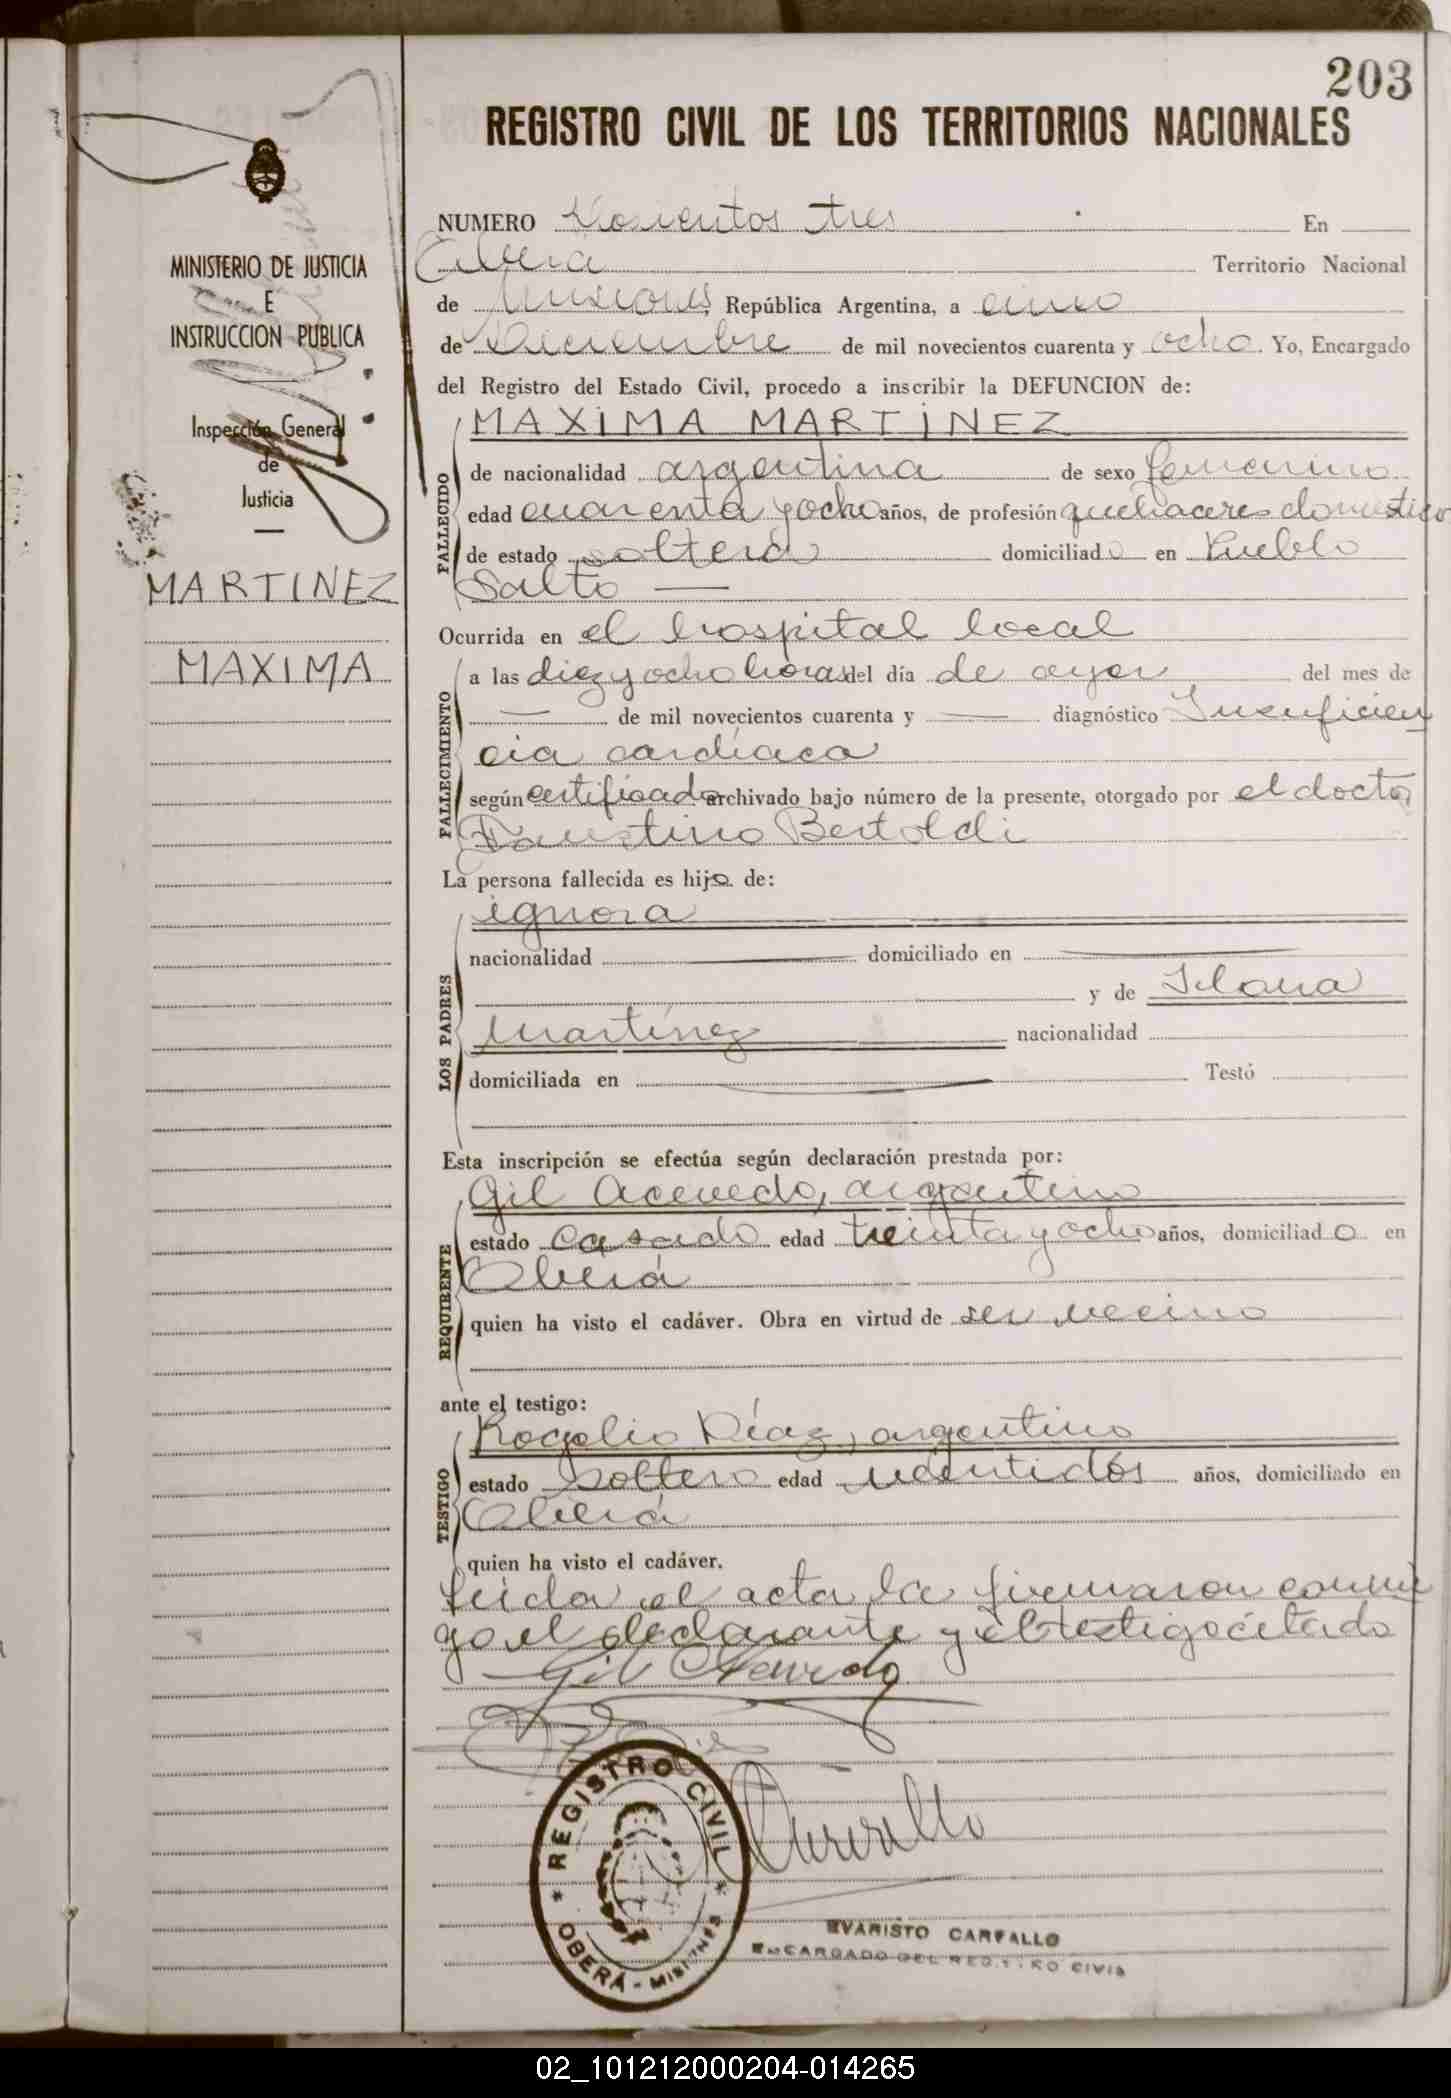 203
REGISTRO CIVIL DE LOS TERRITORIOS NACIONALES
MINISTERIO DE JUSTICIA
E
INSTRUCCION PUBLICA
Inspección General
de
Justicia
MARTINEZ
MAXIMA
NUMERO Doscientos tres En
Oberá Territorio Nacional
de Misiones, República Argentina, a cinco
de Diciembre de mil novecientos cuarenta y ocho. Yo, Encargado
del Registro del Estado Civil, procedo a inscribir la DEFUNCION de:
FALLECIDO
MAXIMA MARTINEZ
de nacionalidad argentina de sexo femenino
edad cuarenta y ocho años, de profesión quehaceres domestico
de estado soltera domiciliado en Pueblo
Salto —
Ocurrida en el hospital local
FALLECIMIENTO
a las diez y ocho horas del día de ayer del mes de
— de mil novecientos cuarenta y — diagnóstico Insuficien
cia cardíaca
según certificado archivado bajo número de la presente, otorgado por el doctor
Faustino Bertoldi
La persona fallecida es hija de:
LOS PADRES
ignora
nacionalidad — domiciliado en —
y de
Martínez nacionalidad
domiciliada en — Testó
Esta inscripción se efectúa según declaración prestada por:
REQUIRENTE
Gil Acevedo, argentino
estado casado edad treinta y ocho años, domiciliado en
Oberá
quien ha visto el cadáver. Obra en virtud de ser vecino
ante el testigo:
TESTIGO
Rogelio Díaz, argentino
estado soltero edad veintidós años, domiciliado en
Oberá
quien ha visto el cadáver.
Leída el acta la firmaron conmi
go el declarante y el testigo citado
Gil Acevedo
REGISTRO CIVIL
* OBERÁ - MISIONES *
EVARISTO CARFALLO
ENCARGADO DEL REGISTRO CIVIL
02_101212000204-014265